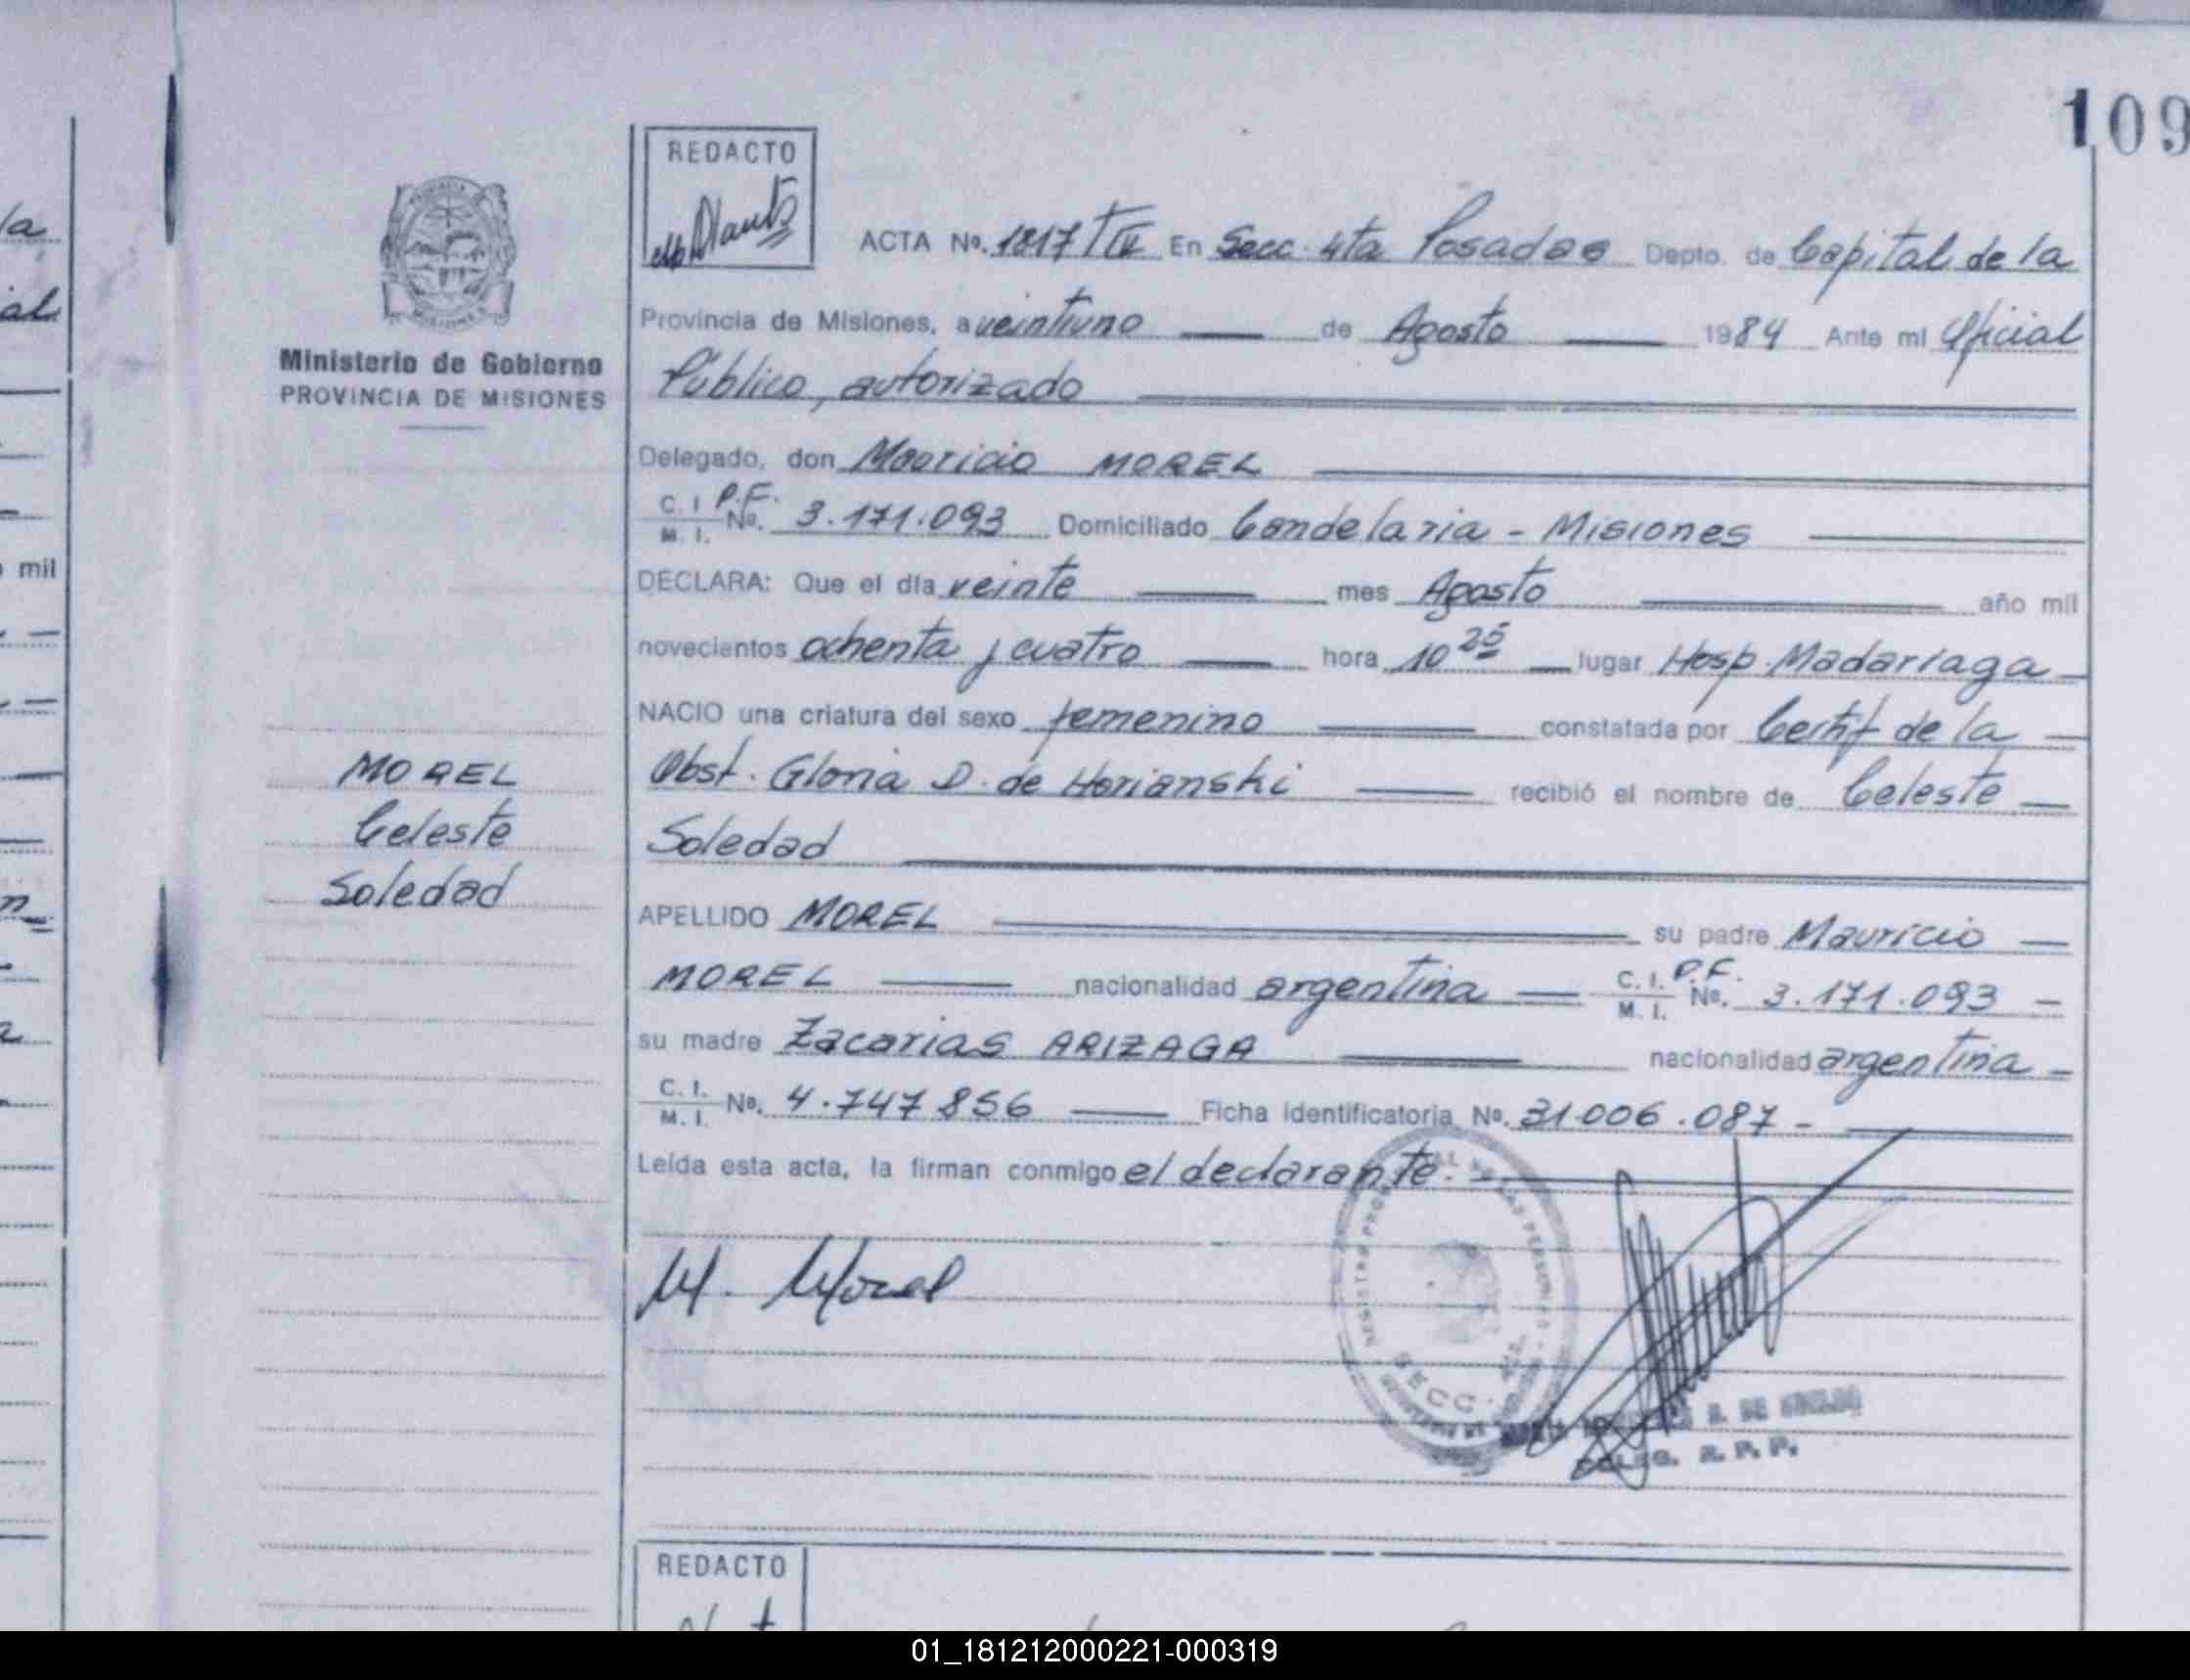 109
REDACTO
ACTA No. 1817 TIV En Secc. 4ta Posadas Depto. de Capital de la
Provincia de Misiones, a veintiuno de Agosto 1984 Ante mi Oficial
Público, autorizado
Ministerio de Gobierno
PROVINCIA DE MISIONES
Delegado, don Mauricio MOREL
C. I. P.F.
M. I. No. 3.171.093 Domiciliado Candelaria - Misiones
DECLARA: Que el día veinte mes Agosto año mil
novecientos ochenta y cuatro hora 10 25 lugar Hosp. Madariaga
NACIO una criatura del sexo femenino constatada por Certif de la
Obst. Gloria D. de Horianski recibió el nombre de Celeste
Soledad
MOREL
Celeste
Soledad
APELLIDO MOREL su padre Mauricio
MOREL nacionalidad argentina C. I. P.F.
M. I. No. 3.171.093
su madre Zacarias ARIZAGA nacionalidad argentina
C. I.
M. I. No. 4.747.856 Ficha identificatoria No. 31.006.087
Leída esta acta, la firman conmigo el declarante.
M. Morel
SECC.
DELEG. R. P. P.
REDACTO
01_181212000221-000319